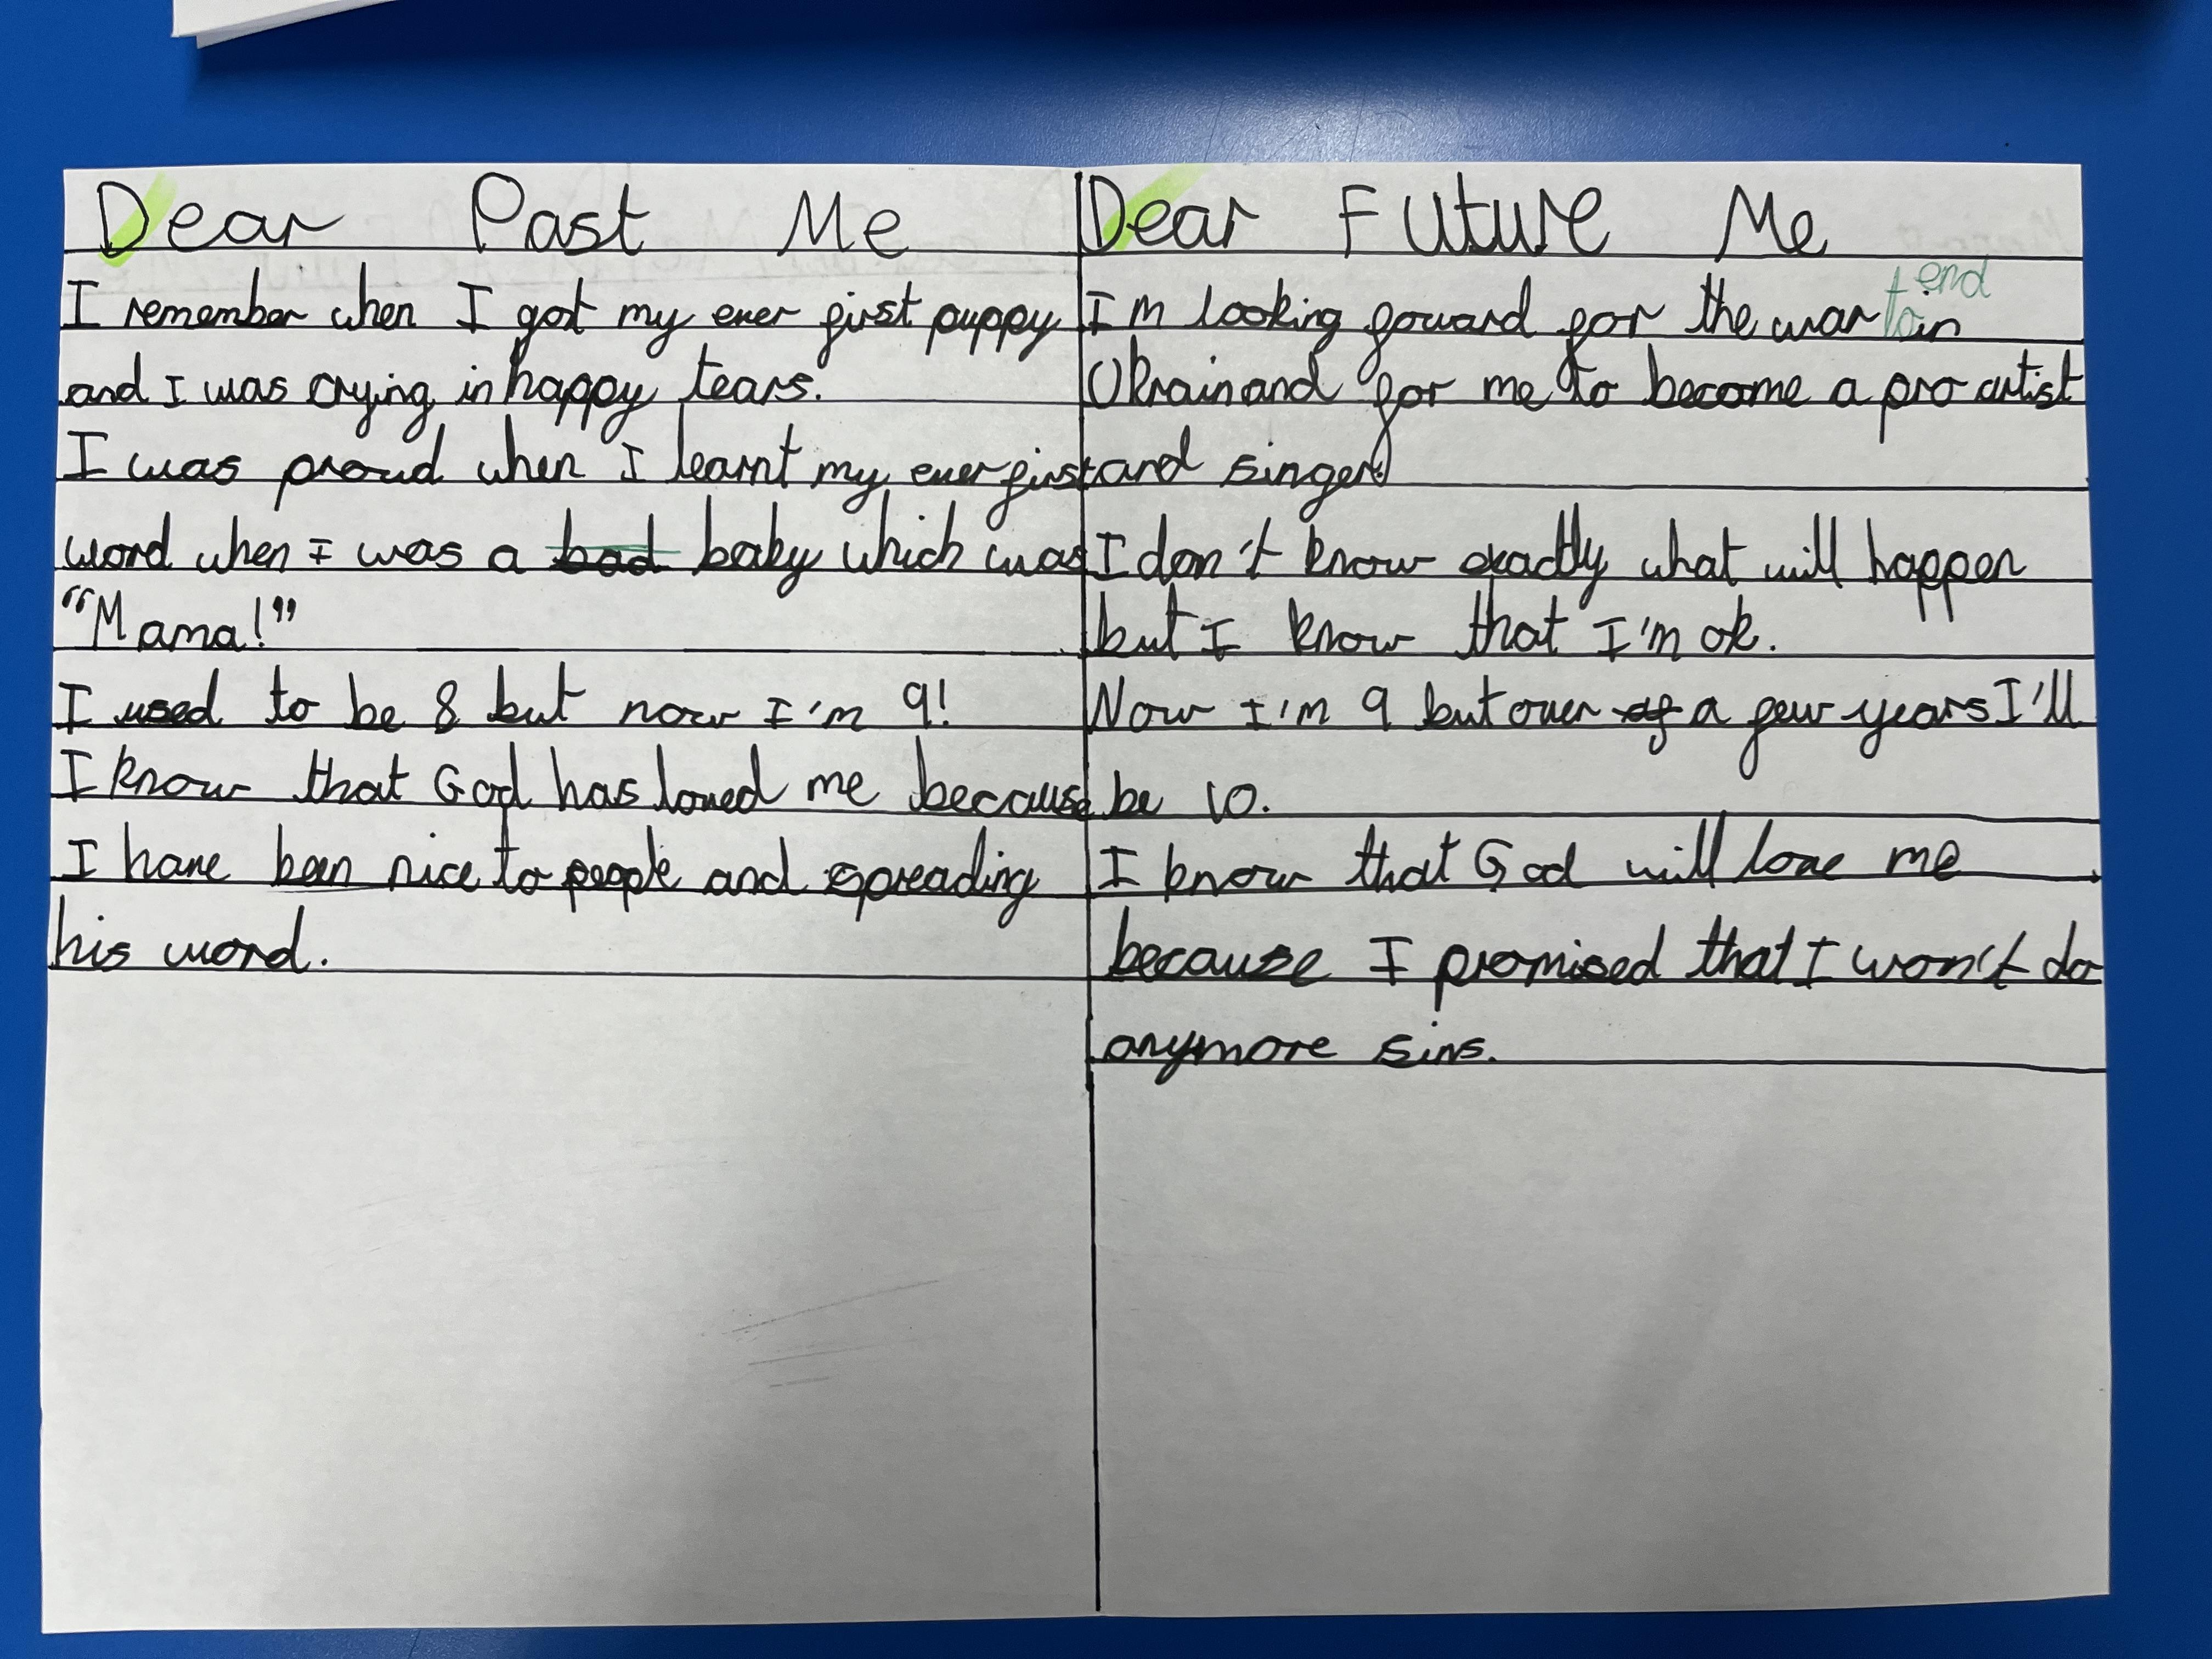 Dear Past Me
I remember when I got my ever first puppy
and I was crying in happy tears.
I was proud when I learnt my ever first
word when I was a bad baby which was
"Mama!"
I used to be 8 but now I'm 9!
I know that God has loved me because
I have been nice to people and spreading
his word.
Dear Future Me
I'm looking foward for the war to end in
Ukrain and for me to become a pro artist
and singer.
I don't know exactly what will happen
but I know that I'm ok.
Now I'm 9 but over of a few years I'll
be 10.
I know that God will love me
because I promised that I won't do
anymore sins.